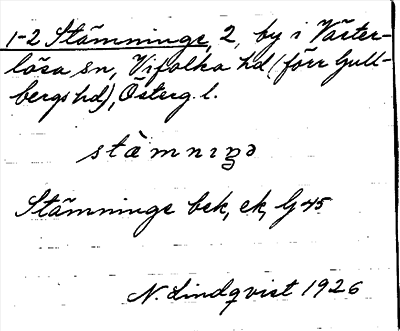 1-2 Stämninge, 2, by i Väster-
lösa sn, Vifolka hd (förr Gull-
bergs hd), Österg. l.
stämniŋə
Stämninge bek, ek, G 45
N. Lindqvist 1926